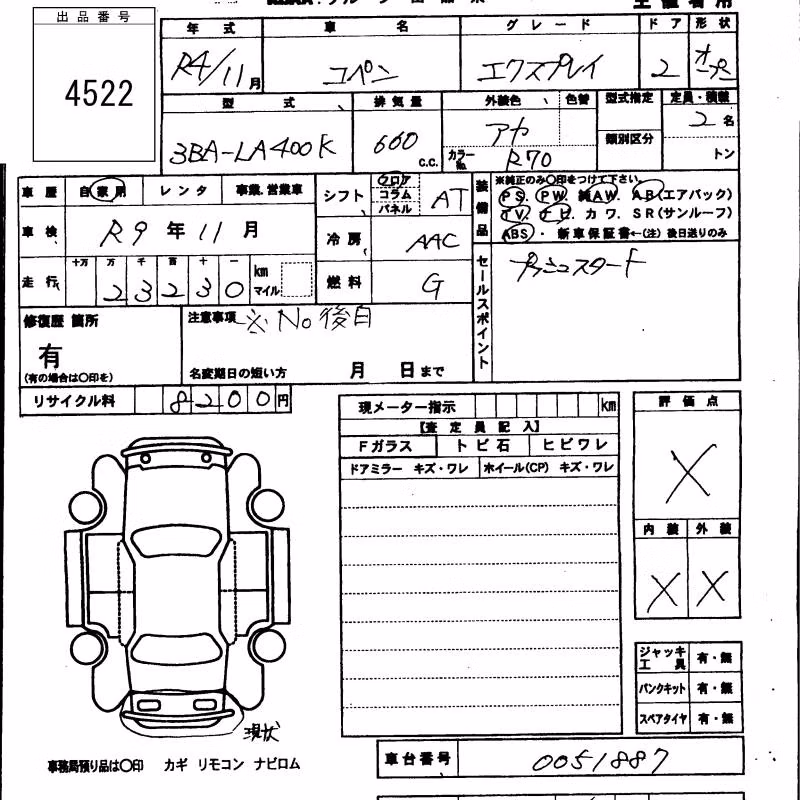 出品番号
4522
年 式 車 名 グ レ ー ド ド ア 形 状
R4/11月 コペン エクスプレイ 2 オープン
型 式 排 気 量 外装色 色替 型式指定 定員・積載
3BA-LA400K 660 c.c. アカ 類別区分 2 名
カラーNo. R70 トン
車 歴 自家用 レ ン タ 事業.営業車 シフト フロア コラム パネル AT
車 検 R9 年 11 月 冷 房 AAC
走 行 十万 万 千 百 十 一 km マイル 燃 料 G
23230
装備品 ※純正のみ〇印をつけて下さい。
PS. PW. 純AW. AB(エアバック)
TV. ナビ. カワ. SR(サンルーフ)
ABS・ 新車保証書←(注)後日送りのみ
セールスポイント プッシュスタート
修復歴 箇所 注意事項 ※No後日
有
(有の場合は〇印を) 名変期日の短い方 月 日まで
リサイクル料 8200円
現メーター指示 km
【査 定 員 記 入】
Fガラス ト ビ 石 ヒ ビ ワ レ
ドアミラー キズ・ワレ ホイール(CP) キズ・ワレ
評 価 点
X
内 装 外 装
X X
現状
ジャッキ工具 有・無
パンクキット 有・無
スペアタイヤ 有・無
事務局預り品は〇印 カギ リモコン ナビロム
車台番号 0051887